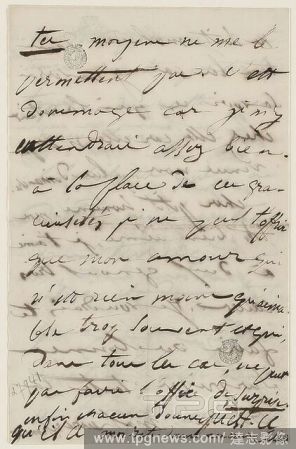 tes moyens ne me le
permettent pas. C'est
dommage car je m'y
entendrais assez bien.
à la place de ces gra-
cieusetés, je ne peux t'offrir
que mon amour qui
n'est rien moins qu'aima-
ble trop souvent et qui,
dans tous les cas, ne peut
pas faire l'office de surprise
enfin chacun donne ce
qu'il a
www.tpgnews.com 達志影像